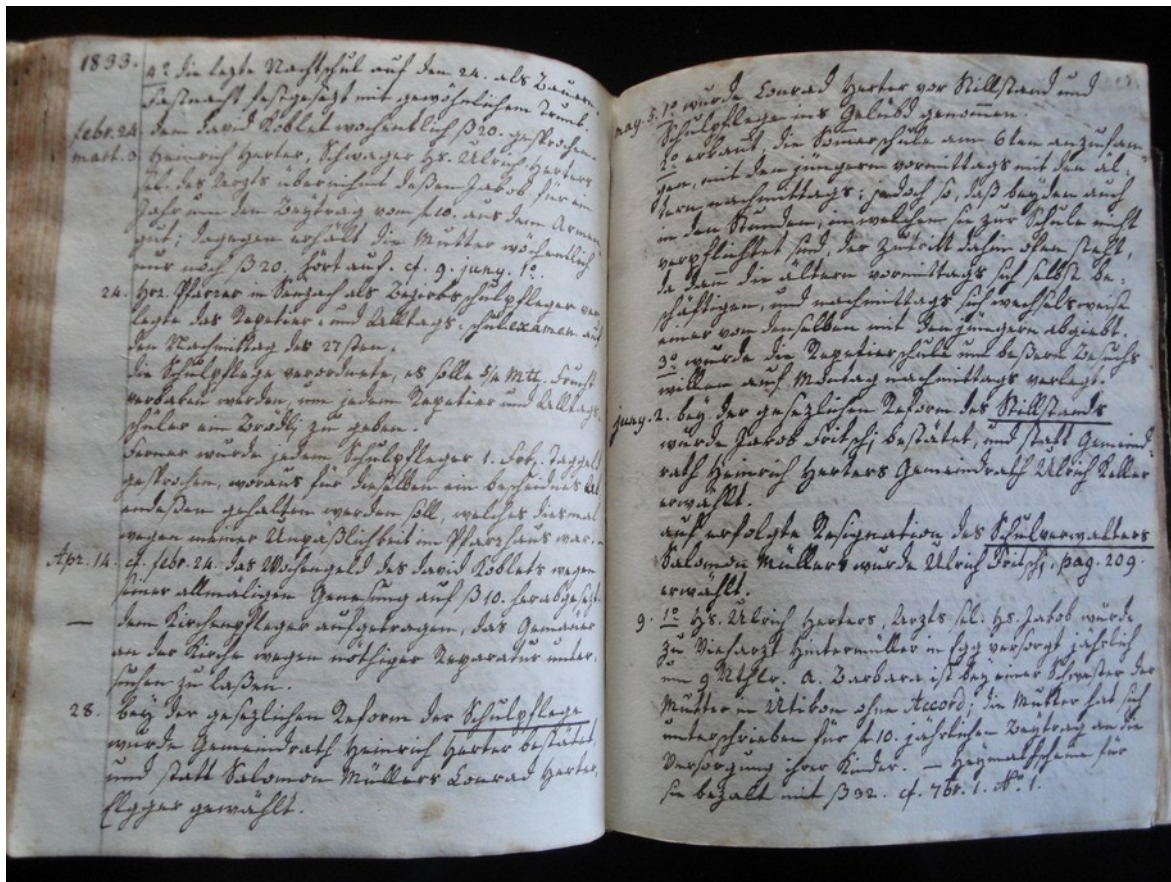 1833. 4º die lezte Nachtschul auf den 24. als Bauern-
Fastnacht festgesezt mit gewöhnlichem Trunk.
febr. 24. dem David Koblet wochentlich ß 20. gesprochen.
mart. 3. Heinrich Herter, Schwager Hs. Ulrich Herters
sel. des Arzts übernihmt deßen Jakob für ein
Jahr um den Beytrag von f. 10. aus dem Armen-
gut; dagegen erhält die Mutter wöchentlich
nur noch ß 20. hört auf. cf. 9. juny. 1º.
24. Hr. Pfarrer in Seuzach als Bezirksschulpfleger ver-
legte das Repetier- und Alltags-schulexamen auf
den Nachmittag des 27sten.
die Schulpflege verordnete, es solle 5/4 Mtt. Frucht
verbaken werden, um jedem Repetier und Alltags-
schüler ein Brödli zu geben.
Ferner wurde jedem Schulpfleger 1. Frk. Taggeld
gesprochen, woraus für dieselben ein bescheidnes
andeßen gehalten werden soll, welches diesmal
wegen meiner Unpäßlichkeit im Pfarrhaus war.
Apr. 14. cf. febr. 24. das Wochengeld des David Koblets wegen
seiner allmäligen Genesung auf ß 10. herabgesezt.
— dem Kirchenpfleger aufgetragen, das Gemäuer
an der Kirche wegen nöthiger Reparatur unter-
suchen zu laßen.
28. bey der gesezlichen Reform der Schulpflege
wurde Gemeindrath Heinrich Herter bestätet,
und statt Salomon Müllers Conrad Herter,
Elgger gewählt.
may. 5. 1º wurde Conrad Herter vor Stillstand und
Schulpflege ins Gelübd genommen.
2º erkannt, die Somerschule am 6ten anzufan-
gen, mit den jüngern vormittags mit den äl-
tern nachmittags; jedoch so, daß beyden auch
in den Stunden, in welchen sie zur Schule nicht
verpflichtet sind, der Zutritt dahin offen steht,
da dann die ältern vormittags sich selbst be-
schäftigen, und nachmittags sich wechselsweise
einer von denselben mit den jüngern abgiebt.
3º wurde die Repetierschule um beßern Besuchs
willen auf Montag nachmittags verlegt.
juny. 2. bey der gesezlichen Reform des Stillstands
wurde Jakob Fritschj bestätet, und statt Gemeind-
rath Heinrich Herters Gemeindrath Ulrich Keller
erwählt.
auf erfolgte Resignation des Schulverwalters
Salomon Müllers wurde Ulrich Fritschj. pag. 209.
erwählt.
9. 1º Hs. Ulrich Herters, Arzts sel. Hs. Jakob wurde
zu Viehharzt Hintermüller in Egg versorgt jährlich
um 9 Rthlr. A. Barbara ist bey einer Schwester der
Mutter in Ütikon ohne Accord; die Mutter hat sich
unterschrieben für f. 10. jährlichen Beytrag an die
Versorgung ihrer Kinder. — Heymathscheine für
sie bezalt mit ß 32. cf. 7br. 1. Nº. 1.